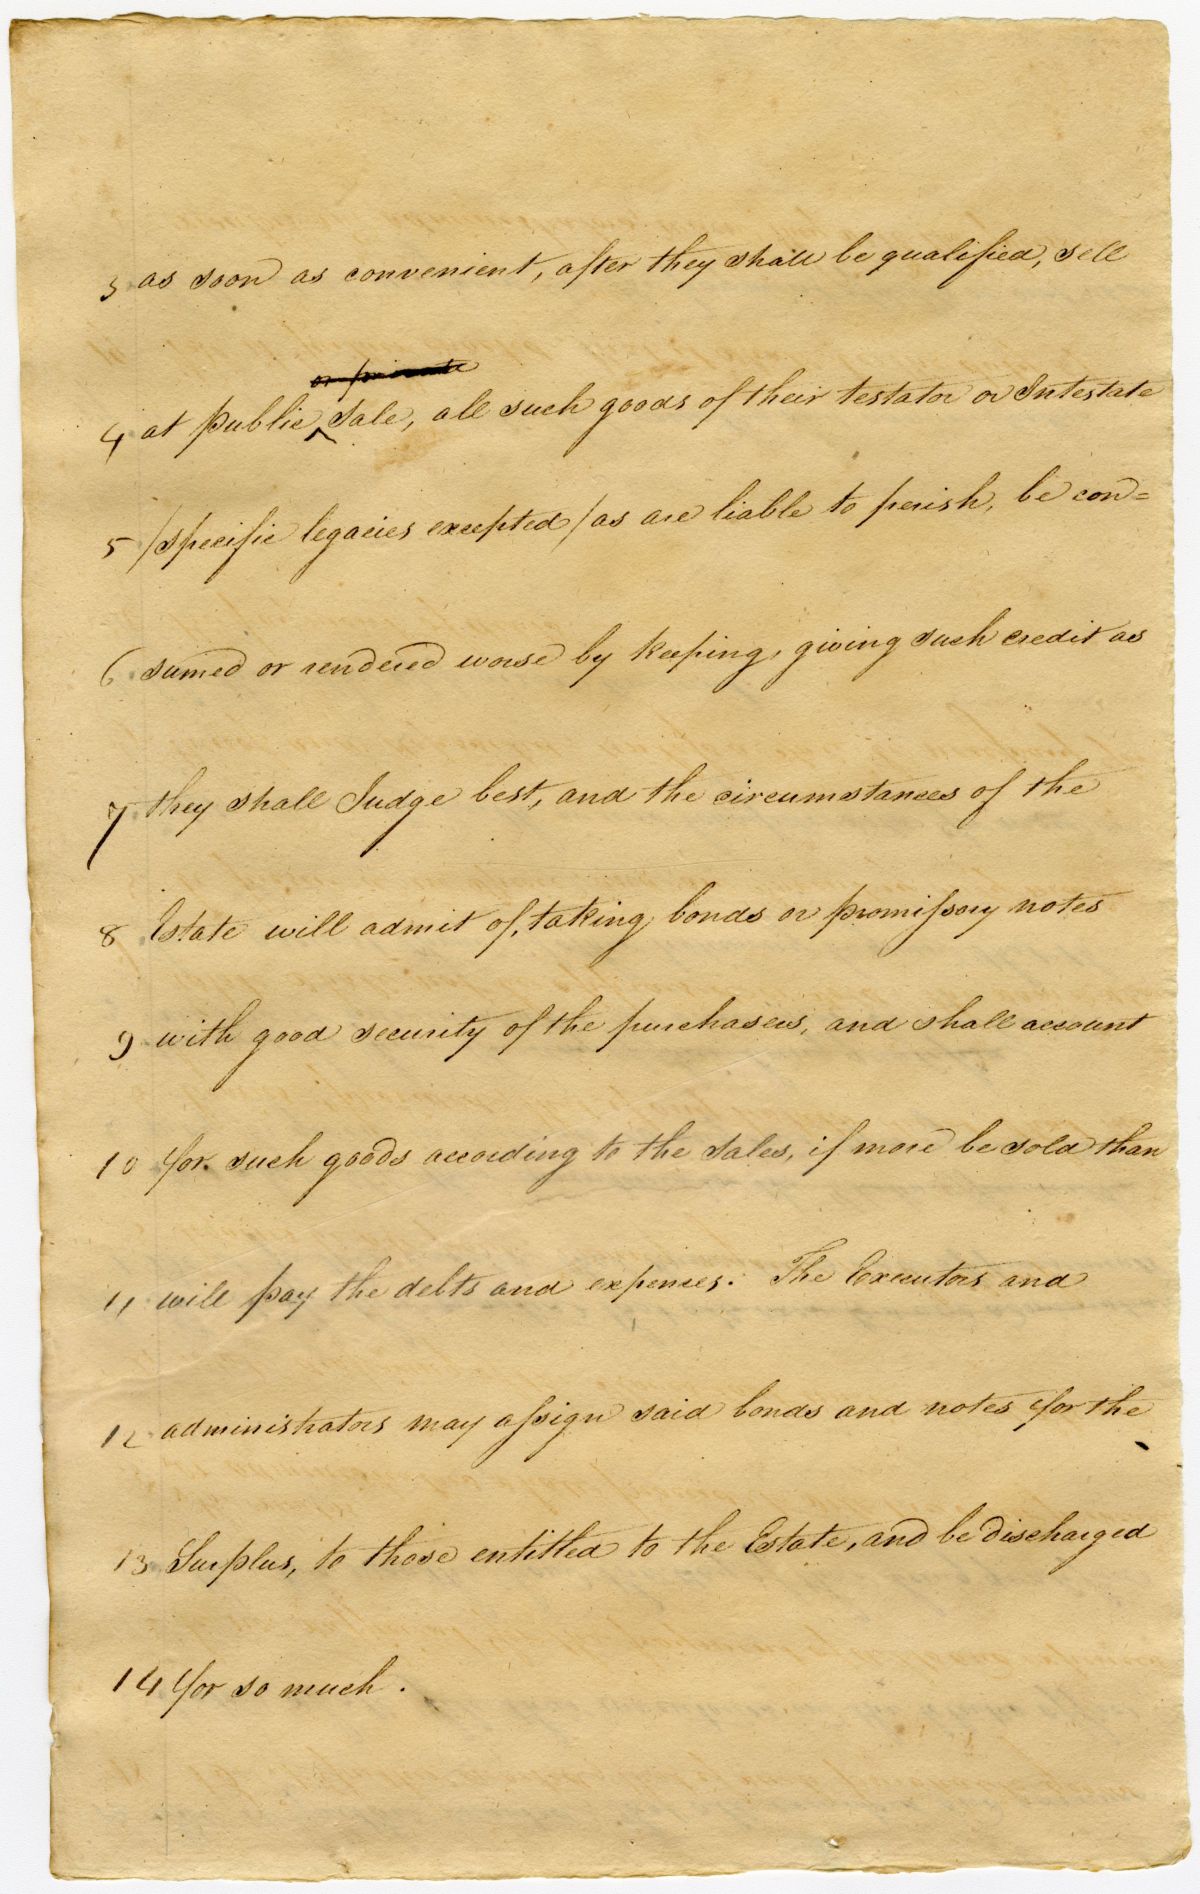 3 as soon as convenient, after they shall be qualified, sell
or private
4 at public ‸ Sale, all such goods of their testator or Intestate
5 /specific legacies excepted/ as are liable to perish, be con=
6 sumed or rendered worse by keeping, giving such credit as
7 they shall Judge best, and the circumstances of the
8 Estate will admit of, taking bonds or promissory notes
9 with good security of the purchasers, and shall account
10 for such goods according to the sales, if more be sold than
11 will pay the debts and expenses. The Executors and
12 administrators may assign said bonds and notes for the
13 Surplus, to those entitled to the Estate, and be discharged
14 for so much.